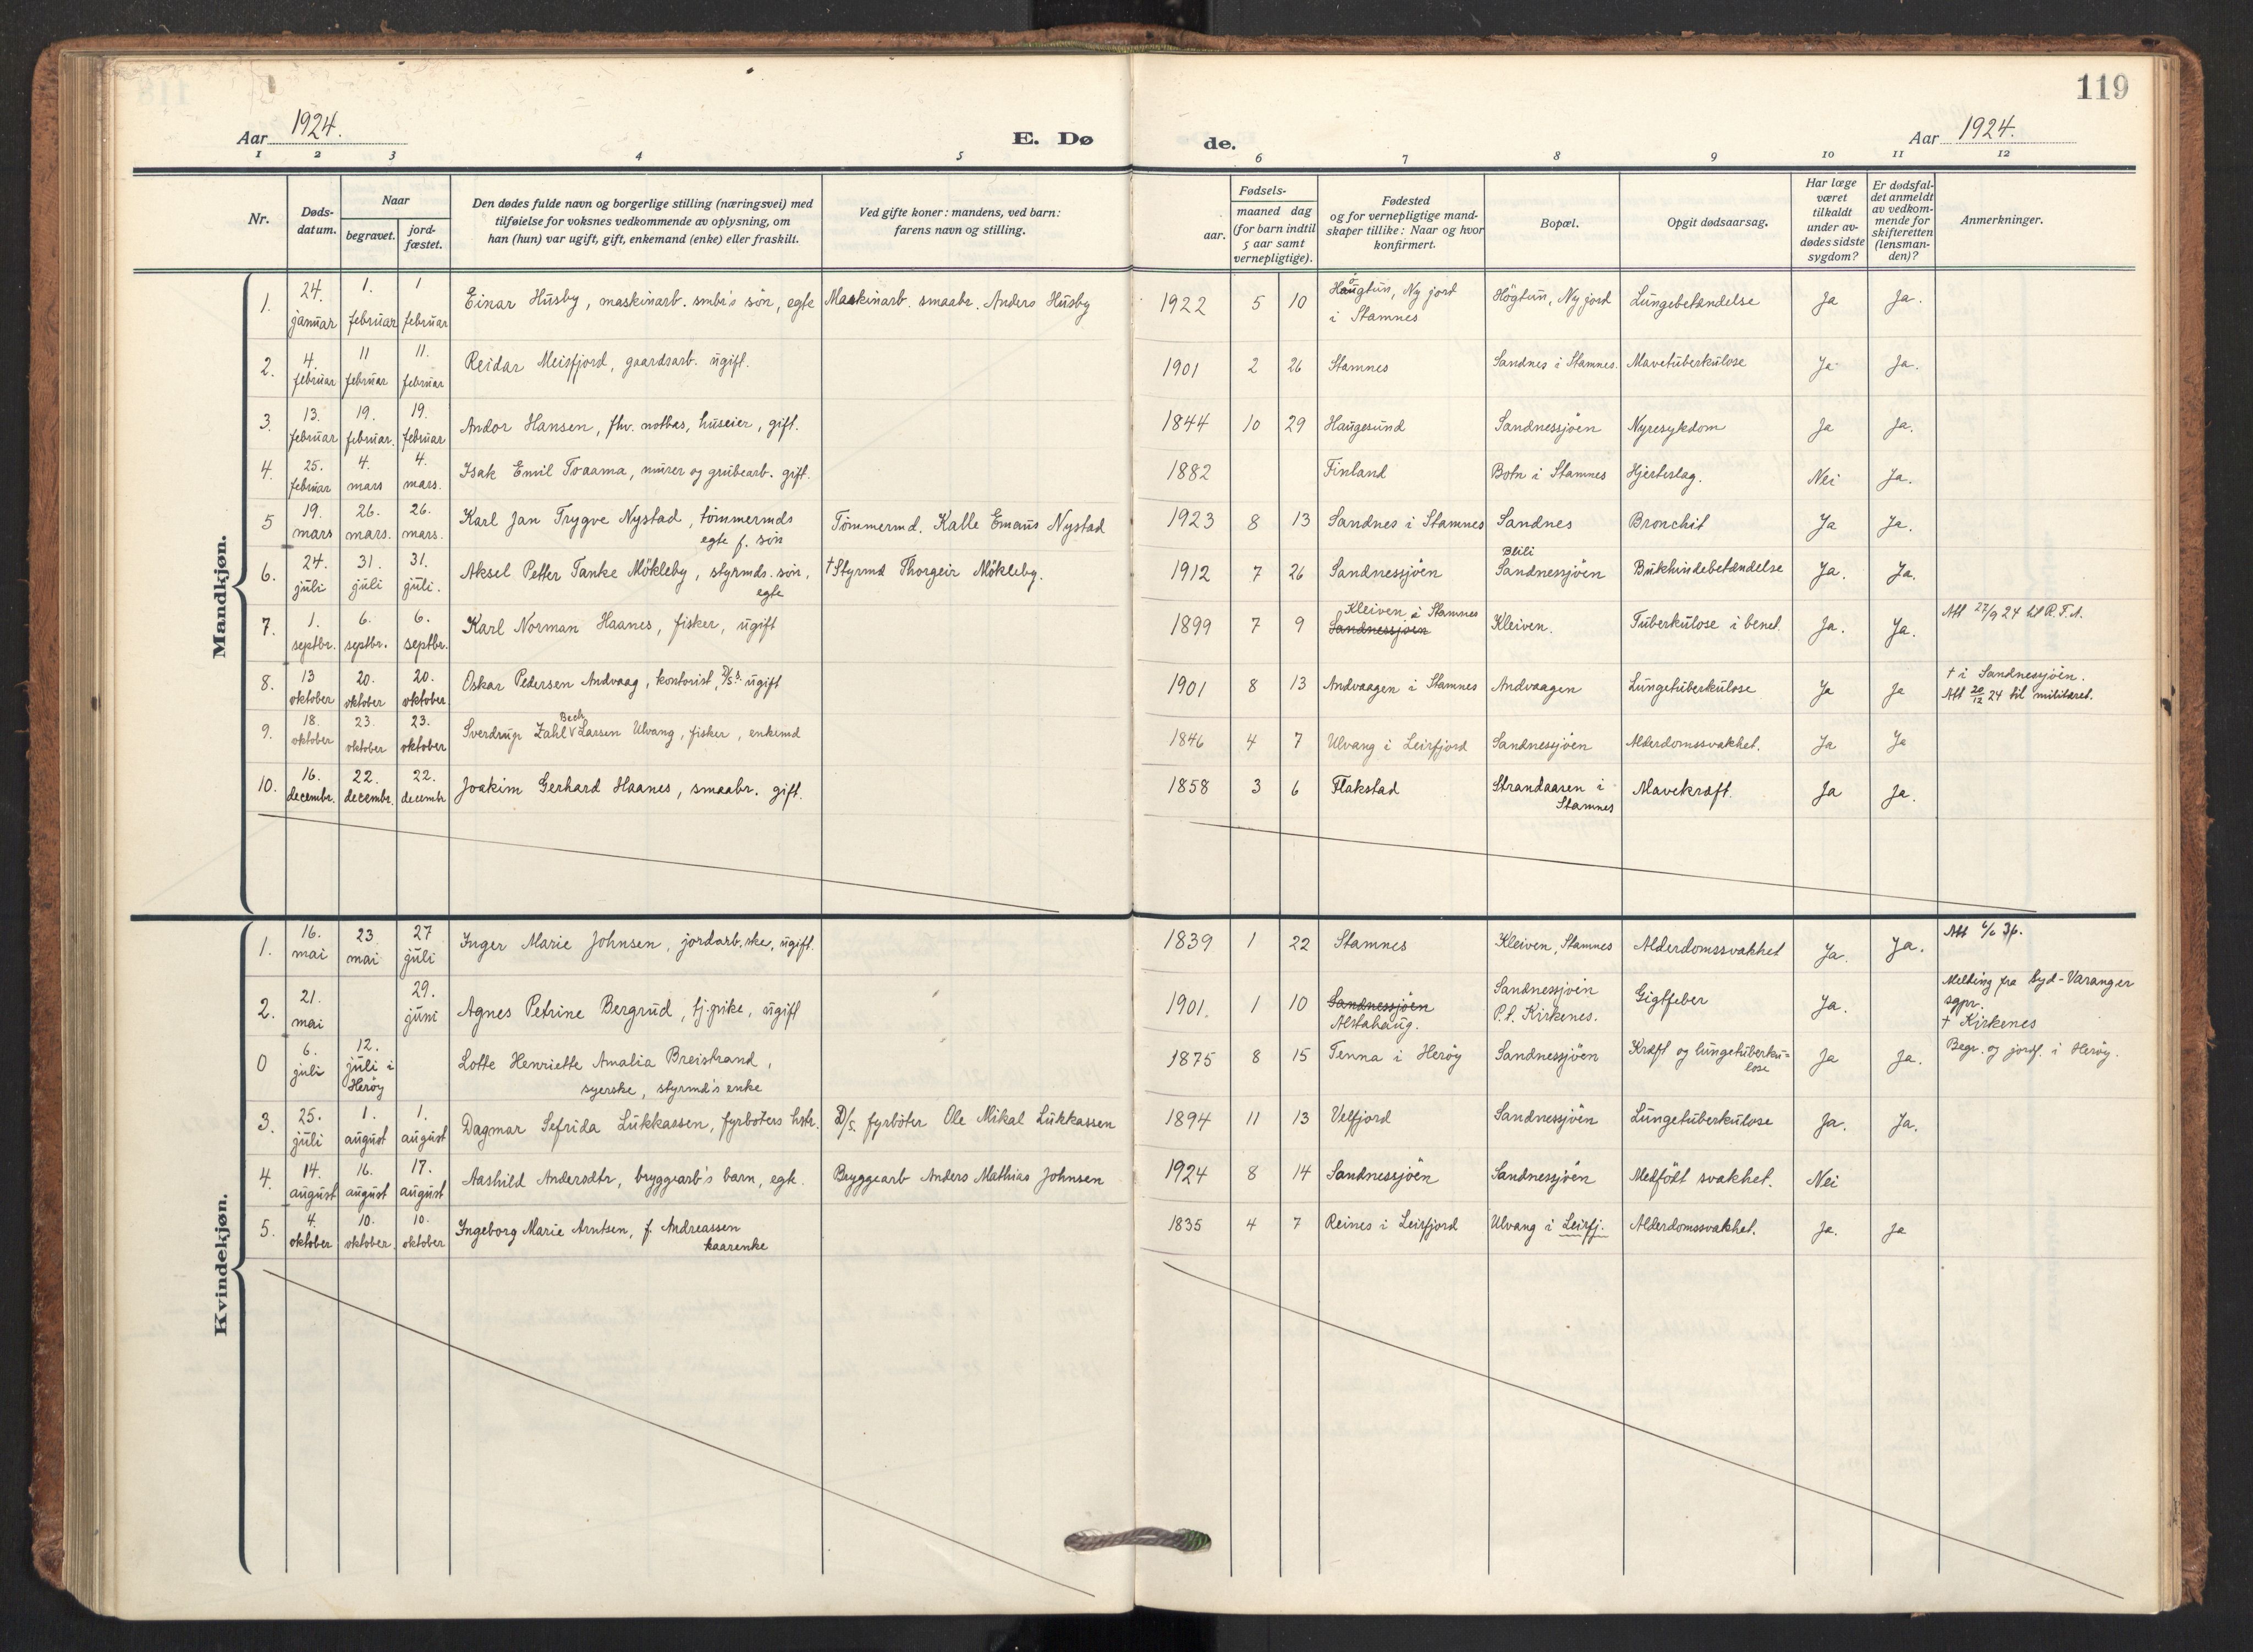 119
Aar 1924.
E. Dø
de.
Aar 1924.
1 2 3 4 5 6 7 8 9 10 11 12
Nr.
Døds-
datum.
Naar
begravet.
jord-
fæstet.
Den dødes fulde navn og borgerlige stilling (næringsvei) med
tilføielse for voksnes vedkommende av oplysning, om
han (hun) var ugift, gift, enkemand (enke) eller fraskilt.
Ved gifte koner: mandens, ved barn:
farens navn og stilling.
Fødsels-
aar.
maaned dag
(for barn indtil
5 aar samt
vernepligtige).
Fødested
og for vernepligtige mand-
skaper tillike: Naar og hvor
konfirmert.
Bopæl.
Opgit dødsaarsag.
Har læge
været
tilkaldt
under av-
dødes sidste
sygdom?
Er dødsfal-
det anmeldt
av vedkom-
mende for
skifteretten
(lensman-
den)?
Anmerkninger.
Mandkjøn.
1. 24. januar 1. februar 1 februar Einar Husby, maskinarb. smbr's søn, egte Maskinarb. smaabr. Anders Husby 1922 5 10 Haugtun, Ny jord
i Stamnes Högtun, Ny jord Lungebetændelse Ja Ja.
2. 4. februar 11 februar 11. februar Reidar Meisfjord, gaardsarb. ugift. 1901 2 26 Stamnes Sandnes i Stamnes. Mavetuberkulose Ja Ja.
3. 13. februar 19. februar. 19. februar Andor Hansen, fhv. notbas, huseier, gift. 1844 10 29 Haugesund Sandnessjöen Nyresykdom Ja Ja.
4. 25. februar 4. mars 4. mars. Isak Emil Toaama, murer og grubearb. gift. 1882 Finland Botn i Stamnes Hjerteslag. Nei Ja.
5 19. mars 26. mars. 26. mars. Karl Jan Trygve Nystad, tömmermds
egte f. sön Tömmermd. Kalle Emaus Nystad 1923 8 13 Sandnes i Stamnes Sandnes Bronchit Ja Ja.
6. 24. juli 31. juli 31. juli. Aksel Petter Tanke Mökleby, styrmds. søn,
egte † Styrmd Thorgeir Mökleby. 1912 7 26 Sandnessjöen Blili
Sandnessjöen Bukhindebetændelse Ja. Ja.
7. 1. septbr. 6. septbr. 6. septbr. Karl Norman Haanes, fisker, ugift 1899 7 9 Kleiven i Stamnes
Sandnessjøen Kleiven. Tuberkulose i benet. Ja. Ja. Att 27/9 24 til R.T.d.
8. 13 oktober 20. oktober 20. oktober Oskar Pedersen Andvaag, kontorist, ugift 1901 8 13 Andvaagen i Stamnes Andvaagen Lungetuberkulose Ja Ja † i Sandnessjöen.
Att 20/12 24 til militæret.
9. 18. oktober 23. oktober 23. oktober Sverdrup Zahl Bech Larsen Ulvang, fisker, enkemd 1846 4 7 Ulvang i Leirfjord Sandnessjöen Alderdomssvakhet. Ja Ja
10. 16. decembr. 22. decembr. 22. decembr Joakim Gerhard Haanes, smaabr. gift. 1858 3 6 Flakstad Strandaasen i
Stamnes Mavekræft. Ja Ja.
Kvindekjøn.
1. 16. mai 23 mai 27 juli Inger Marie Johnsen, jordarb.ske, ugift. 1839 1 22 Stamnes Kleiven, Stamnes Alderdomssvakhet Ja. Ja. Att
2. 21. mai 29. juni Agnes Petrine Bergrud, tj.pike, ugift 1901. 1 10 Sandnessjöen
Alstahaug. Sandnessjöen
P.t. Kirkenes. Gigtfeber Ja. Melding fra Syd-Varanger
sgpr.
† Kirkenes
0 6. juli 12. juli i
Herøy Lotte Henriette Amalia Breistrand,
syerske, styrmd's enke 1875 8 15 Tenna i Herøy Sandnessjöen Kræft og lungetuberku=
lose Ja Ja. Begr. og jordf. i Herøy.
3. 25. juli 1. august 1. august Dagmar Sefrida Lukkassen, fyrbøters hstr. D/s. fyrbøter Ole Mikal Lukkassen 1894 11 13 Velfjord Sandnessjöen Lungetuberkulose Ja. Ja.
4. 14. august 16. august 17. august Aashild Andersdtr, bryggearb's barn, egte. Bryggearb Anders Mathias Johnsen 1924 8 14 Sandnessjöen Sandnessjöen Medfödt svakhet. Nei
5. 4. oktober 10. oktober 10. oktober Ingeborg Marie Arntsen, f. Andreassen
kaarenke 1835 4 7 Reines i Leirfjord Ulvang i Leirfj. Alderdomssvakhet. Ja. Ja